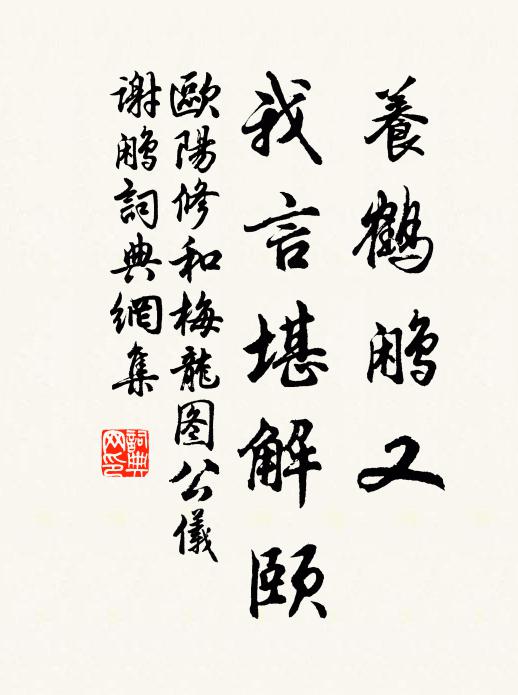 養鶴鷴又
我言堪解頤
歐陽修和梅龍图公儀
謝鷴詞典網集
詞典網印